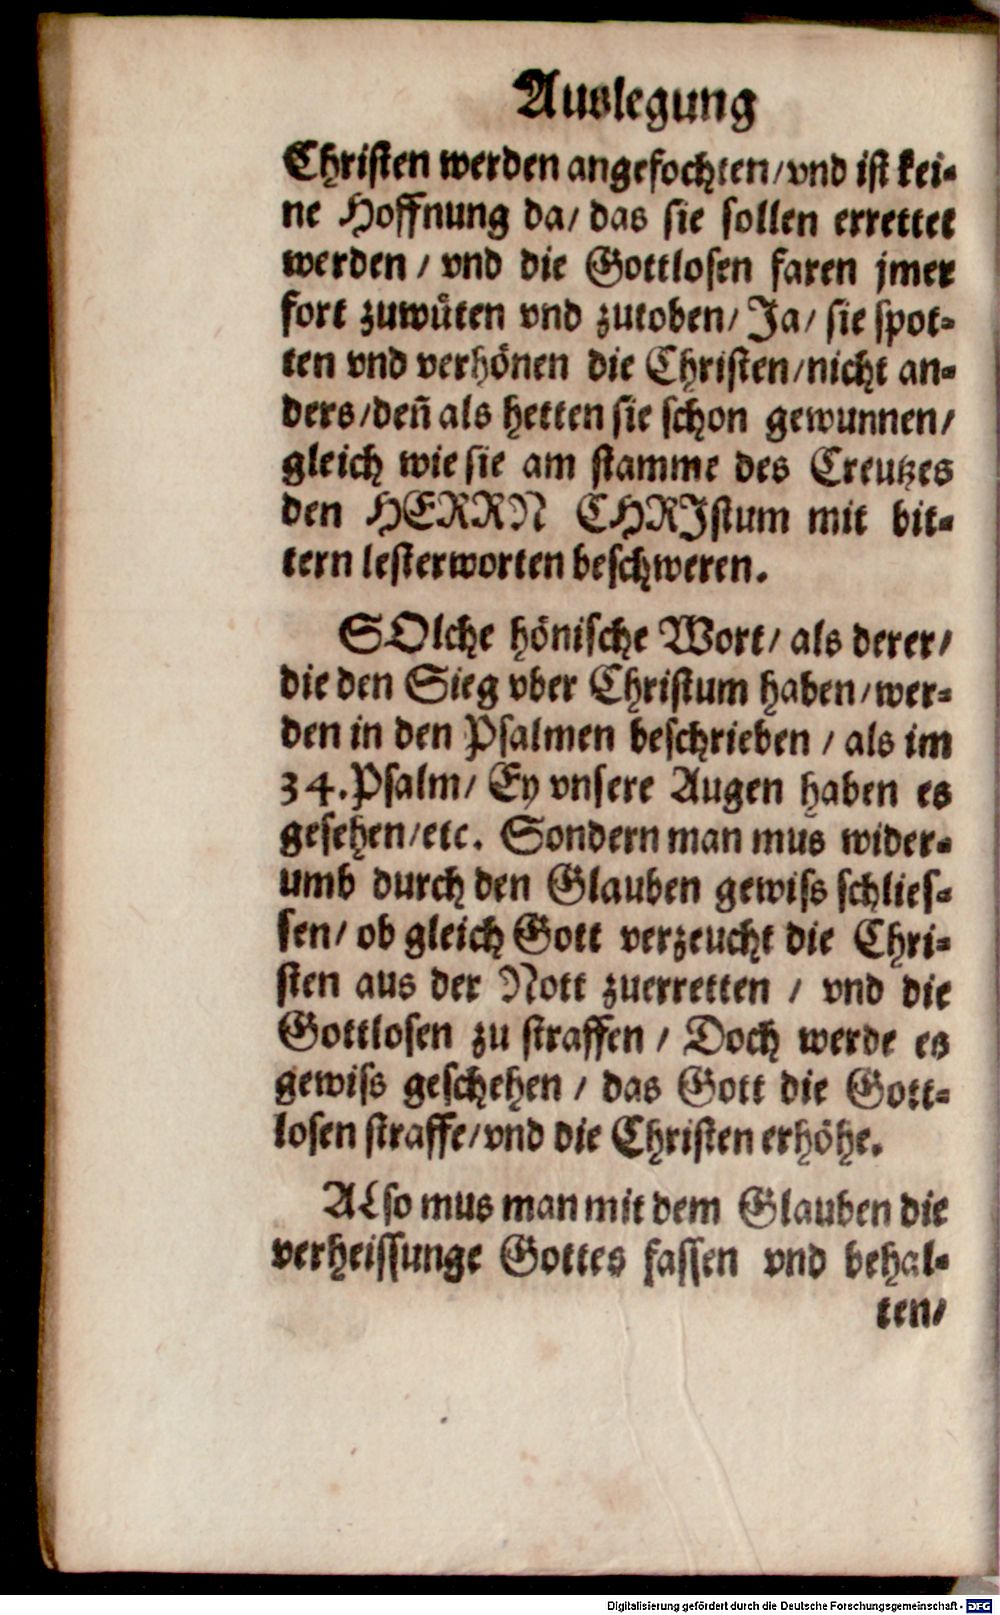 Auslegung
Christen werden angefochten/vnd ist kei-
ne Hoffnung da/ das sie sollen errettet
werden / vnd die Gottlosen faren jmer
fort zuwüten vnd zutoben/ Ja/ sie spot-
ten vnd verhönen die Christen/nicht an-
ders/deñ als hetten sie schon gewunnen/
gleich wie sie am stamme des Creutzes
den HERRN CHRIstum mit bit-
tern lesterworten beschweren.
SOlche hönische Wort/ als derer/
die den Sieg vber Christum haben/wer-
den in den Psalmen beschrieben / als im
34. Psalm/ Ey vnsere Augen haben es
gesehen/etc. Sondern man mus wider-
umb durch den Glauben gewiss schlies-
sen/ ob gleich Gott verzeucht die Chri-
sten aus der Nott zuerretten / vnd die
Gottlosen zu straffen / Doch werde es
gewiss geschehen / das Gott die Gott-
losen straffe/vnd die Christen erhöhe.
ALso mus man mit dem Glauben die
verheissunge Gottes fassen vnd behal-
ten/
Digitalisierung gefördert durch die Deutsche Forschungsgemeinschaft - DFG